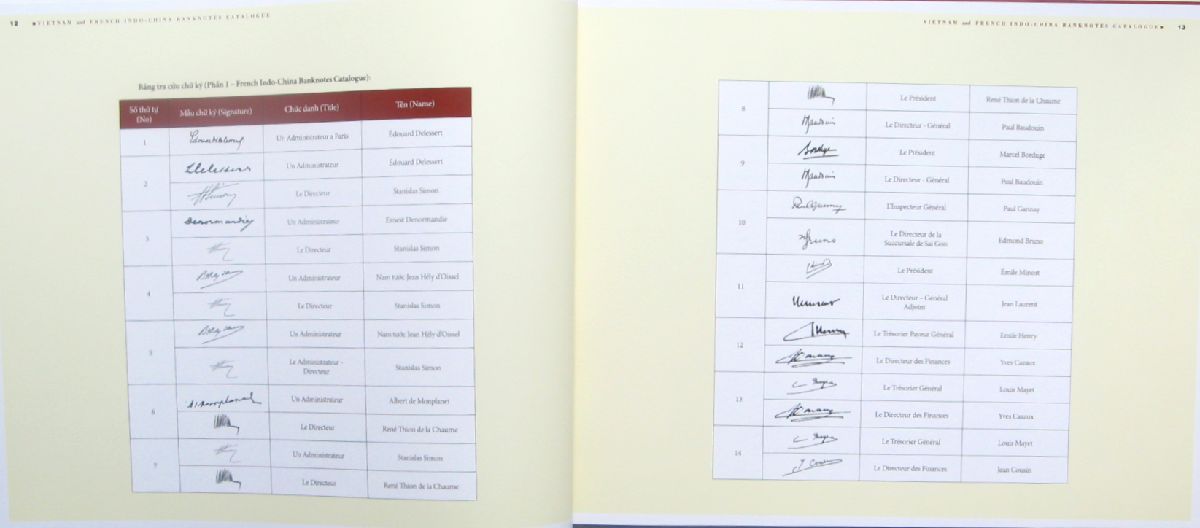 12 ■VIETNAM and FRENCH INDO-CHINA BANKNOTES CATALOGUE
Bảng tra cứu chữ ký (Phần 1 – French Indo-China Banknotes Catalogue):
Số thứ tự (No) Mẫu chữ ký (Signature) Chức danh (Title) Tên (Name)
1 Un Administrateur a Paris Édouard Delessert
2 Un Administrateur Édouard Delessert
Le Directeur Stanislas Simon
3 Un Administrateur Ernest Denormandie
Le Directeur Stanislas Simon
4 Un Administrateur Nam tước Jean Hély d'Oissel
Le Directeur Stanislas Simon
5 Un Administrateur Nam tước Jean Hély d'Oissel
Le Administrateur - Directeur Stanislas Simon
6 Un Administrateur Albert de Monplanet
Le Directeur René Thion de la Chaume
7 Un Administrateur Stanislas Simon
Le Directeur René Thion de la Chaume
VIETNAM and FRENCH INDO-CHINA BANKNOTES CATALOGUE■ 13
8 Le Président René Thion de la Chaume
Le Directeur - Général Paul Baudouin
9 Le Président Marcel Borduge
Le Directeur - Général Paul Baudouin
10 l'Inspecteur Général Paul Gannay
Le Directeur de la Succursale de Sai Gon Edmond Bruno
11 Le Président Émile Minost
Le Directeur – Général Adjoint Jean Laurent
12 Le Trésorier Payeur Général Emile Henry
Le Directeur des Finances Yves Cazaux
13 Le Trésorier Général Louis Mayet
Le Directeur des Finances Yves Cazaux
14 Le Trésorier Général Louis Mayet
Le Directeur des Finances Jean Cousin